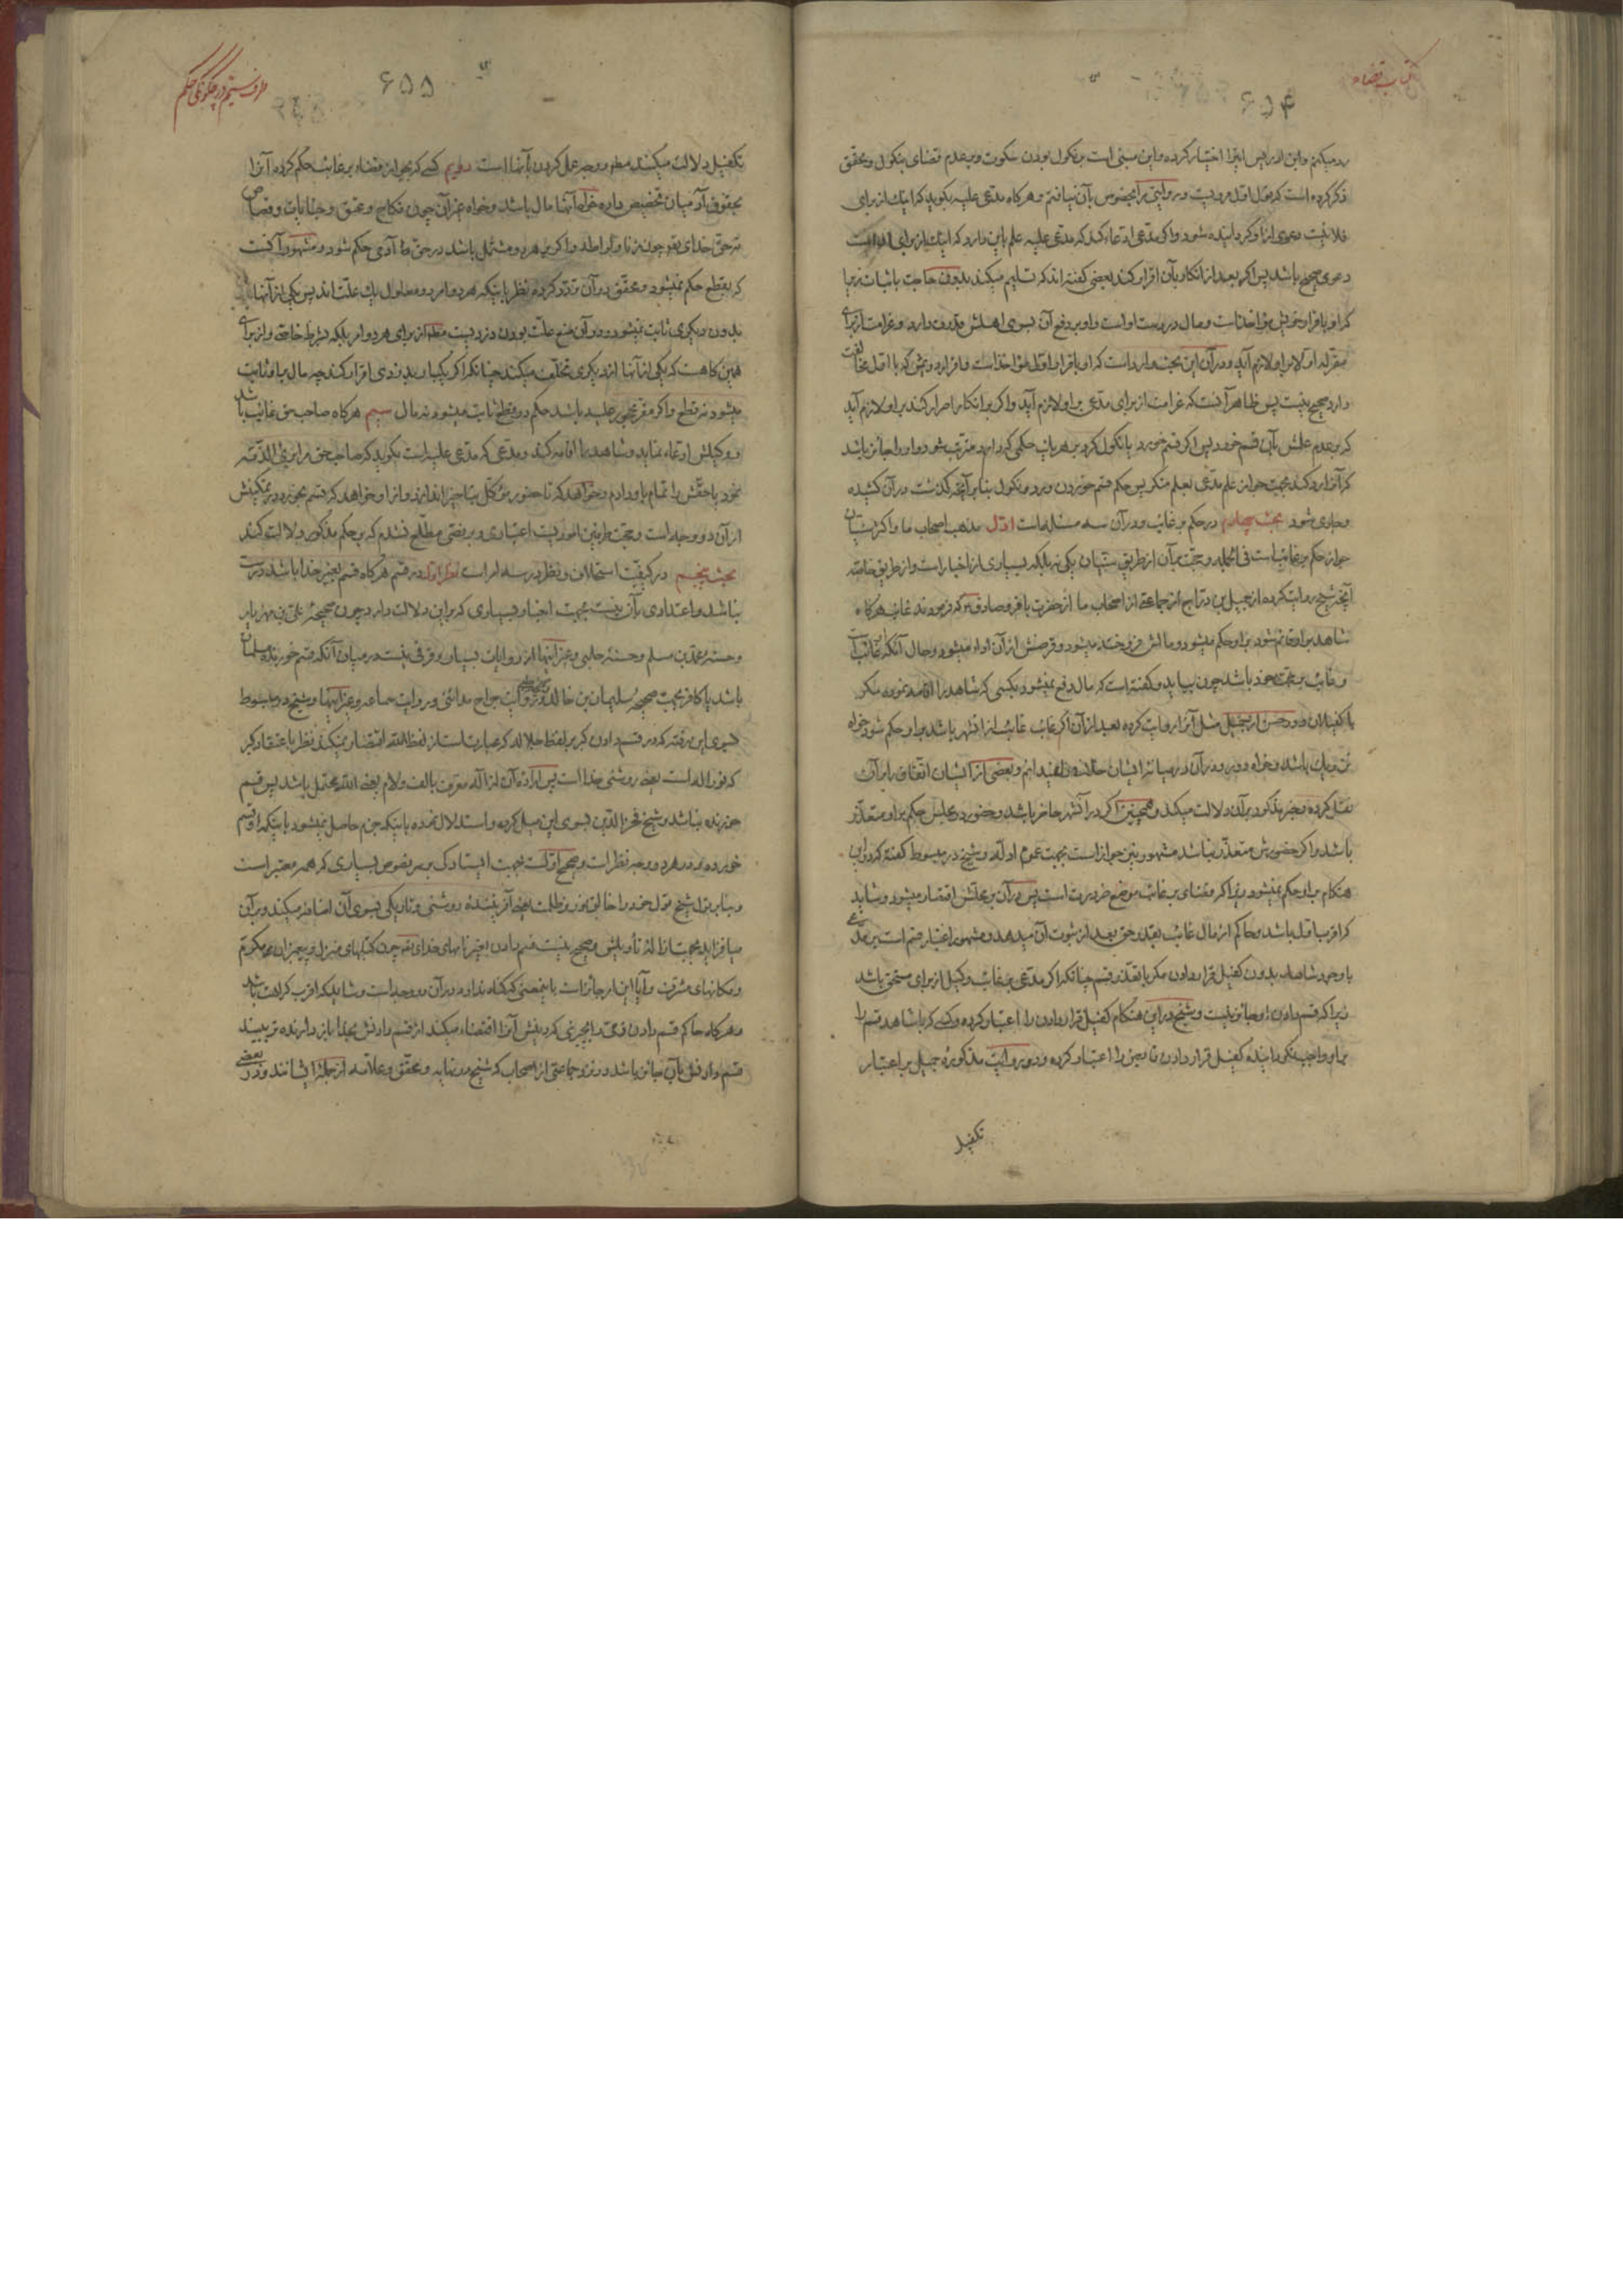 کتاب قضاء
۶۵۴
رد میکنیم و ابن ادریس اینرا اختیار کرده و این مبنی است بر نکول بودن سکوت و بر عدم قضای بنکول و محقق
ذکر کرده است که قول اول مرویست و روایتی را بخصوص بآن نیافتم و هرگاه مدعی علیه بگوید که اینک از برای
فلانیست دعوی از او گردانیده شود و اگر مدعی ادعاء کند که مدعی علیه علم باین دارد که اینک از برای
دعوی صحیح باشد پس اگر بعد از انکار بآن اقرار کند بعضی گفته‌اند که تسلیم میکند بدون حاجت باثبات زیرا
که او باقرار خویش مؤاخذ است و مال در دست اوست و او بر دفع آن بسوی اهلش قدرت دارد و غرامت از برای
مقر له اولا بر او لازم آید و در آن این بحث وارد است که او باقرار اول مؤاخذ است و اقرار دویمش که با اول مخالفت
دارد صحیح نیست پس ظاهر آنست که غرامت از برای مدعی بر او لازم آید و اگر بر انکار اصرار کند بر او لازم آید
که بر عدم علمش بآن قسم خورد پس اگر قسم خورد یا نکول کرد بر هر یک حکمی که دارد مترتب شود و او را جائز باشد
که آنرا رد کند بجهت جواز علم مدعی بعلم منکر پس حکم قسم خوردن و رد و نکول بنابر آنچه گذشت در آن کشیده
و جاری شود بحث چهارم در حکم بر غائب و در آن سه مسئله است اول مذهب اصحاب ما و اکثر سنیان
جواز حکم بر غائب است فی الجمله و حجت بر آن از طریق سنیان یکی نه بلکه بسیاری از اخبار است و از طریق خاصه
آنچه شیخ روایت کرده از جمیل بن دراج از جماعتی از اصحاب ما از حضرت باقر و صادق که فرمودند غائب هرگاه
شاهد بر او قائم شود بر او حکم میشود و مالش فروخته میشود و قرضش از آن اداء میشود و حال آنکه غائب است
و غائب بر حجت خود باشد چون بیاید و گفته است که مال دفع نمیشود بکسی که شاهد را اقامه نموده مگر
با کفیلان و در حسن از جمیل مثل آنرا روایت کرده بعد از آن اگر غائب غائب از آنشهر باشد بر او حکم شود خواه
نزدیک باشد و خواه دور و در آن در میانه ایشان خلافی ندیده‌ایم و بعضی از ایشان اتفاق را بر آن
نقل کرده و خبر مذکور بر آن دلالت میکند و همچنین اگر در آنشهر حاضر باشد و حضور در مجلس حکم بر او متعذر
باشد و اگر حضورش متعذر نباشد مشهور نیز جواز است بجهت عموم ادله و شیخ در مبسوط گفته که در این
هنگام بر او حکم نمیشود زیرا که قضای بر غائب موضع ضرورت است پس در آن بر محلش اقتصار میشود و شاید
که اقرب اول باشد و حاکم از مال غائب بقدر حق بعد از ثبوت آن میدهد و مشهور اعتبار قسم است بر مدعی
با وجود شاهد بدون کفیل قرار دادن مگر با تعذر قسم چنانکه اگر مدعی بر غائب وکیل از برای مستحق باشد
زیرا که قسم دادن او جائز نیست و شیخ در این هنگام کفیل قرار دادن را اعتبار کرده و کسی که با شاهد قسم را
بر او واجب نگرداننده کفیل قرار دادن قابض را اعتبار کرده و در روایت مذکوره جمیل بر اعتبار
تکفیل
طرف سیم در چگونگی حکم
۶۵۵
تکفیل دلالت میکند مطلقا و وجه عمل کردن بآنها است دویم کسی که بجواز قضاء بر غائب حکم کرده آنرا
بحقوق آدمیان تخصیص داده خواه آنها مال باشد و خواه غیر آن چون نکاح و عتق و جنایات و قصاص
نه حق خدای تعالی چون زنا و لواط و اگر بر هر دو مشتمل باشد در حق آدمی حکم شود و مشهور آنست
که بقطع حکم نمیشود و محقق در آن تردد کرده نظر باینکه هر دو امر دو معلول یک علت‌اند پس یکی از آنها
بدون دیگری ثابت نمیشود و در آن منع علت بودن دزدیست مطلقا از برای هر دو امر بلکه بشرط خاصی و از برای
همین گاهست که یکی از آنها از دیگری تخلف میکند چنانکه اگر یکبار بدزدی اقرار کند چه مال باو ثابت
میشود نه قطع و اگر مقر محجور علیه باشد حکم در قطع ثابت میشود نه مال سیم هرگاه صاحب حق غائب باشد
و وکیلش ادعاء نماید و شاهد را اقامه کند و مدعی که مدعی علیه است بگوید که صاحب حق مرا بری الذمه
نمود یا حقش را تمام باو دادم و خواهد که تا حضور موکل بتأخیر اندازد و از او خواهد که قسم بخورد در تمکینش
از آن دو وجه است و حجت طرفین امور نیست اعتباری و بر نصی مطلع نشدم که بر حکم مذکور دلالت کند
بحث پنجم در کیفیت استحلاف و نظر در سه امر است امر اول در قسم هرگاه قسم بغیر خدا باشد درست
نباشد و اعتدادی بآن نیست بجهت اخبار بسیاری که بر این دلالت دارد چون صحیحه علی بن مهزیار
و حسنه محمد بن مسلم و حسنه حلبی و غیر اینها از روایات بسیار و فرقی نیست در میان آنکه قسم خورنده مسلمان
باشد یا کافر بجهت صحیحه سلیمان بن خالد و روایت جراح مدائنی و روایت سماعه و غیر اینها و شیخ در مبسوط
بسوی این رفته که در قسم دادن گبر بر لفظ جلاله که عبارت است از لفظ الله اقتصار نمیکند نظر باعتقاد گبر
که نور اله است یعنی روشنی خدا است پس اراده آن از اله معرف بالف و لام یعنی الله محتمل باشد پس قسم
خورنده نباشد و شیخ فخرالدین بسوی این میل کرده و استدلال نموده باینکه جزم حاصل نمیشود باینکه او قسم
خورده و در هر دو وجه نظر است و صحیح اول است بجهت ایستادگی بر نصوص بسیاری که همه معتبر است
و بنابر قول شیخ قول خود را خالق نور و ظلمت یعنی آفریننده روشنی و تاریکی بسوی آن اضافه میکند و بر آن
میافزاید بجهت ازاله تأویلش و صحیح نیست قسم دادن بغیر نامهای خدای تعالی چون کتابهای منزل و پیغمبران مکرم
و مکانهای مشرف و آیا این کار جائز است باینمعنی که گناه ندارد در آن دو وجه است و شاید که اقرب کراهت باشد
و هرگاه حاکم قسم دادن ذمی را بچیزی که دینش آنرا اقتضاء میکند از قسم دادنش بخدا باز دارنده‌تر بیند
قسم دادنش بآن جائز باشد در نزد جماعتی از اصحاب که شیخ در نهایه و محقق و علامه از جمله ایشانند و در بعضی